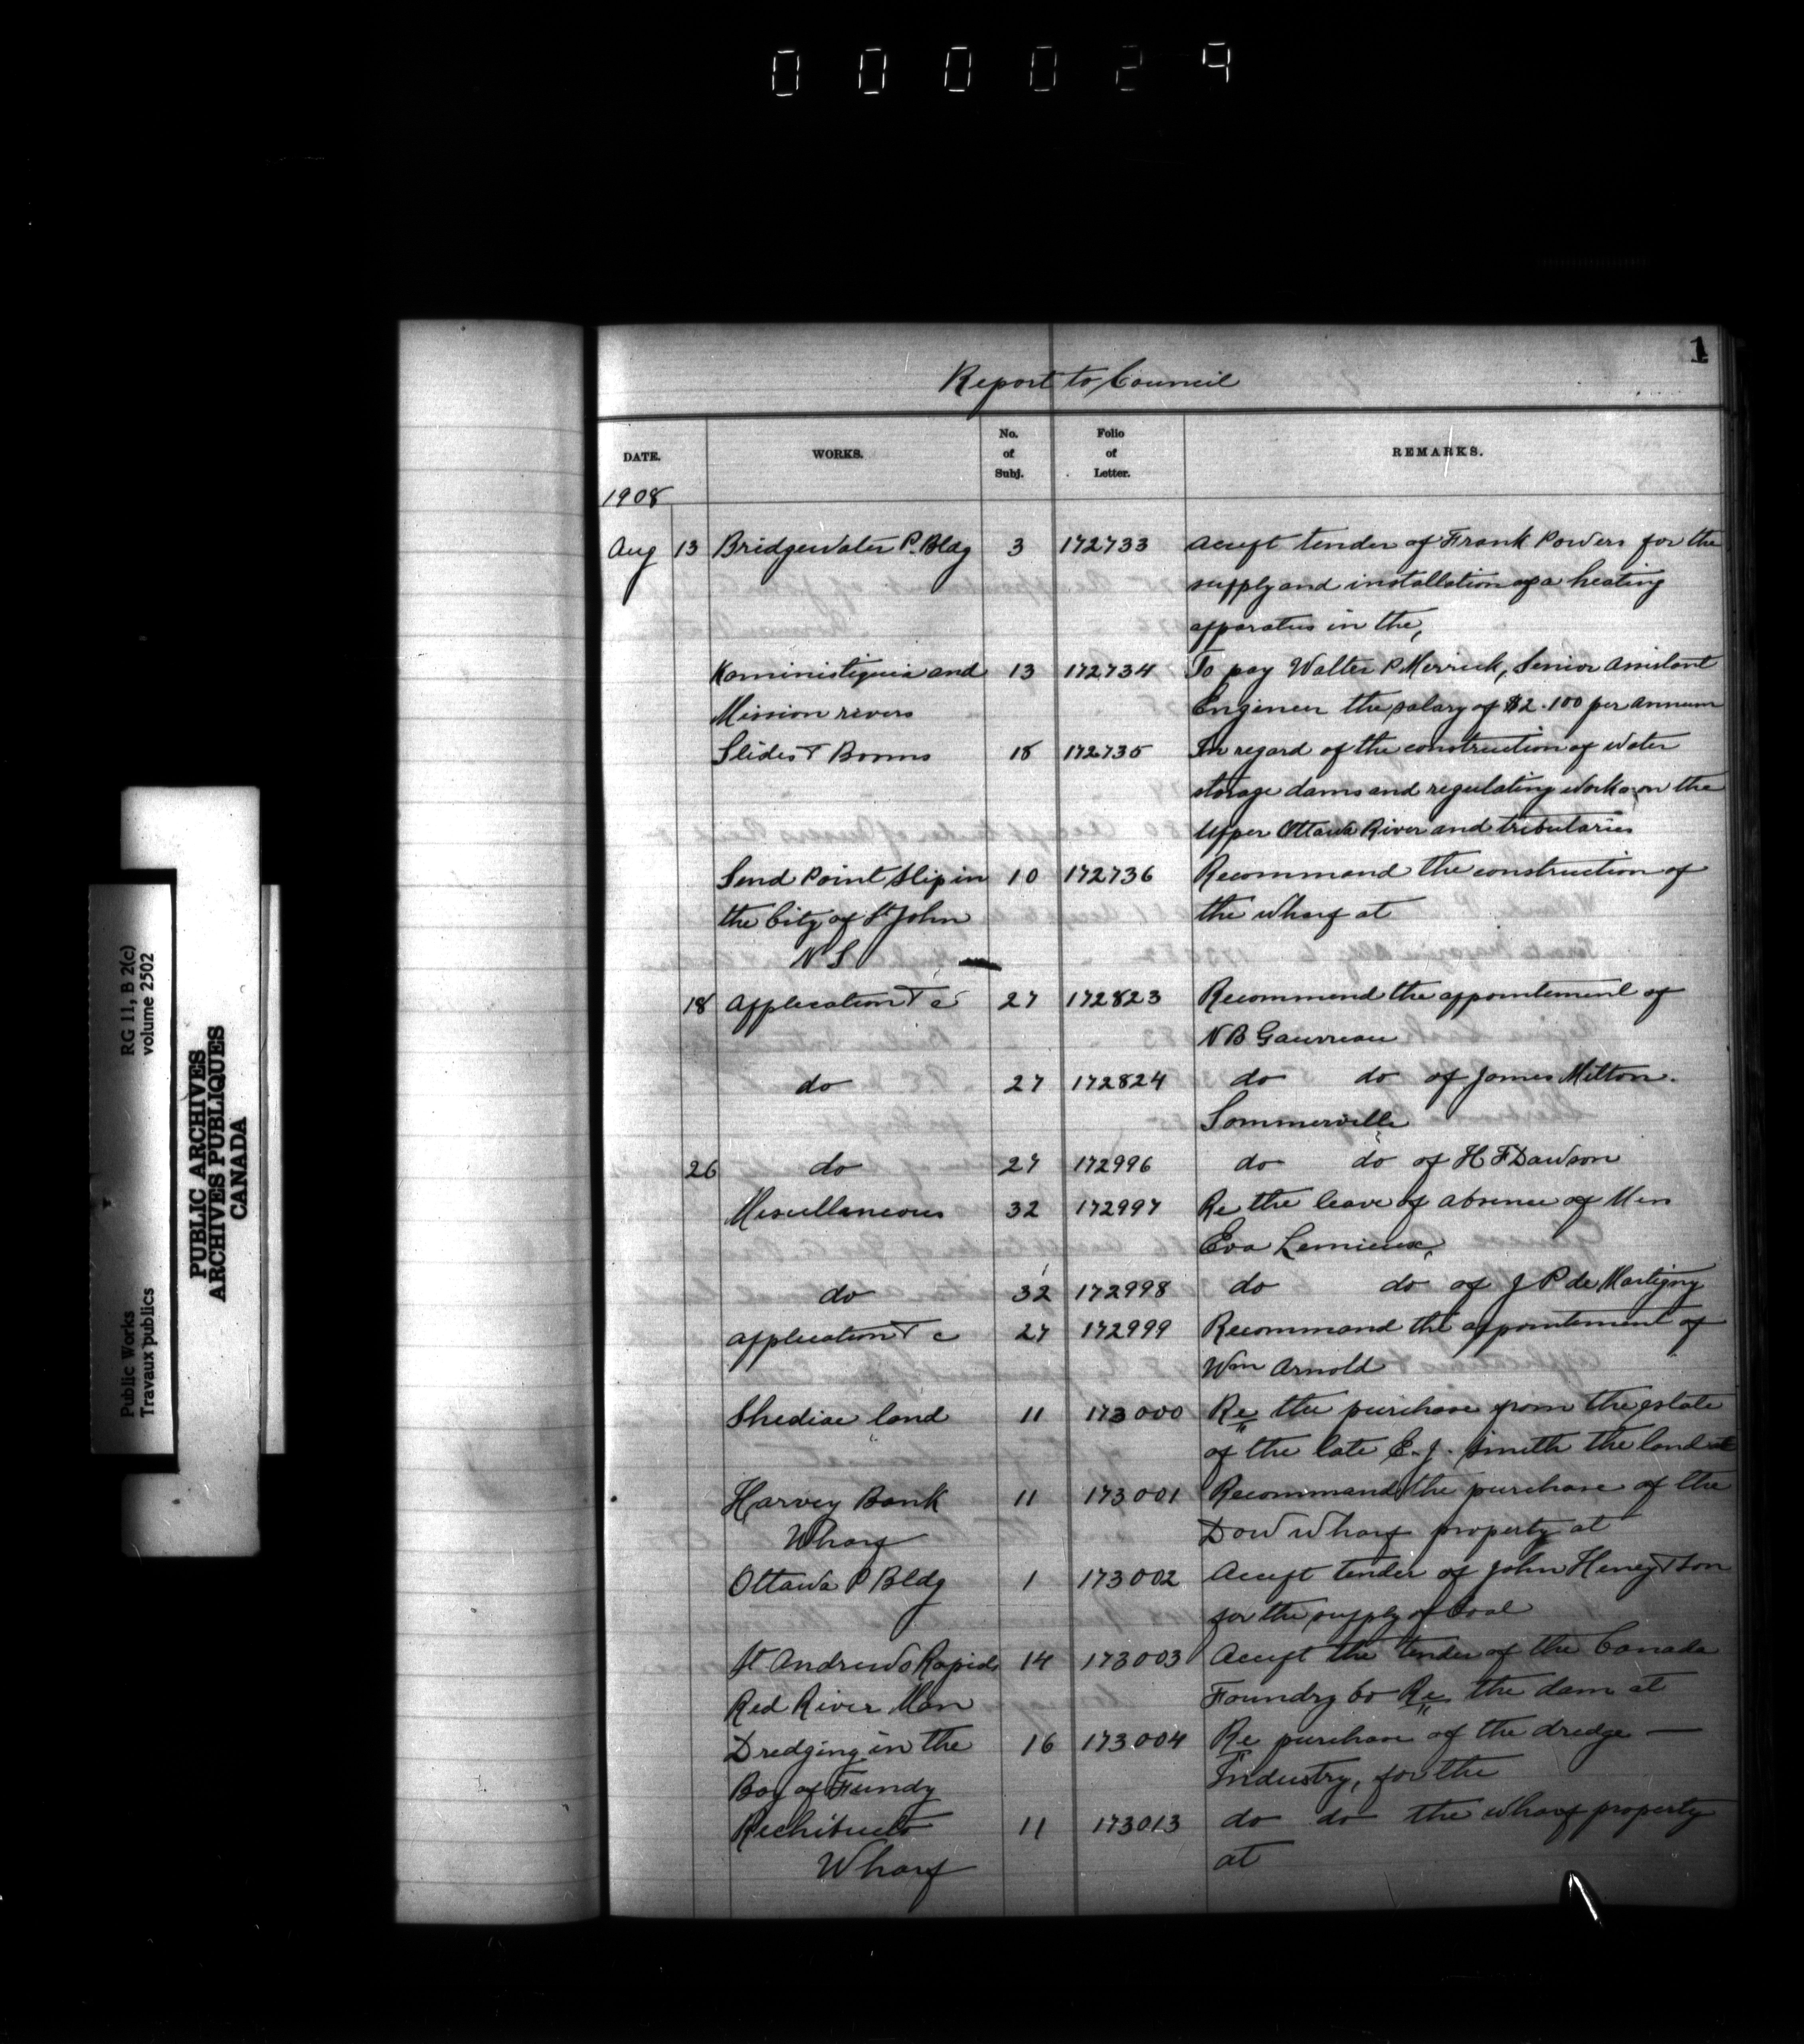 000029
1
Report to Council
DATE. WORKS. No. of Subj. Folio of Letter. REMARKS.
1908
Aug 13 Bridgewater P. Bldg 3 172733 Accept tender of Frank Powers for the
supply and installation of a heating
apparatus in the,
Kaministiquia and 13 172734 To pay Walter P Merrick, Senior Assistant
Mission rivers Engineer the salary of $2.100 per annum
Slides & Booms 18 172735 In regard of the construction of water
storage dams and regulating works on the
Upper Ottawa River and tributaries
Sand Point Slip in 10 172736 Recommand the construction of
the City of St John the wharf at
N S
18 Application & c 27 172823 Recommend the appointement of
N B Gauvreau
do 27 172824 do do of James Milton.
Sommerville
26 do 27 172996 do do of H F Dawson
Miscellaneous 32 172997 Re the leave of absence of Miss
Eva Lemieux,
do 32 172998 do do of J P de Martigny
Application & c 27 172999 Recommand the appointement of
Wm Arnold
Shediac land 11 173000 Re the purchase from the estate
of the late E. J. Smith the land at
Harvey Bank 11 173001 Recommand the purchase of the
Wharf Dow wharf property at
Ottawa P Bldg 1 173002 Accept tender of John Heney & Son
for the supply of Coal
St Andrews Rapids 14 173003 Accept the tender of the Canada
Red River Man Foundry Co Re the dam at
Dredging in the 16 173004 Re purchase of the dredge —
Bay of Fundy Industry, for the
Richibucto 11 173013 do do the wharf property
Wharf at
Public Works
Travaux publics
RG 11, B 2(c)
volume 2502
PUBLIC ARCHIVES
ARCHIVES PUBLIQUES
CANADA